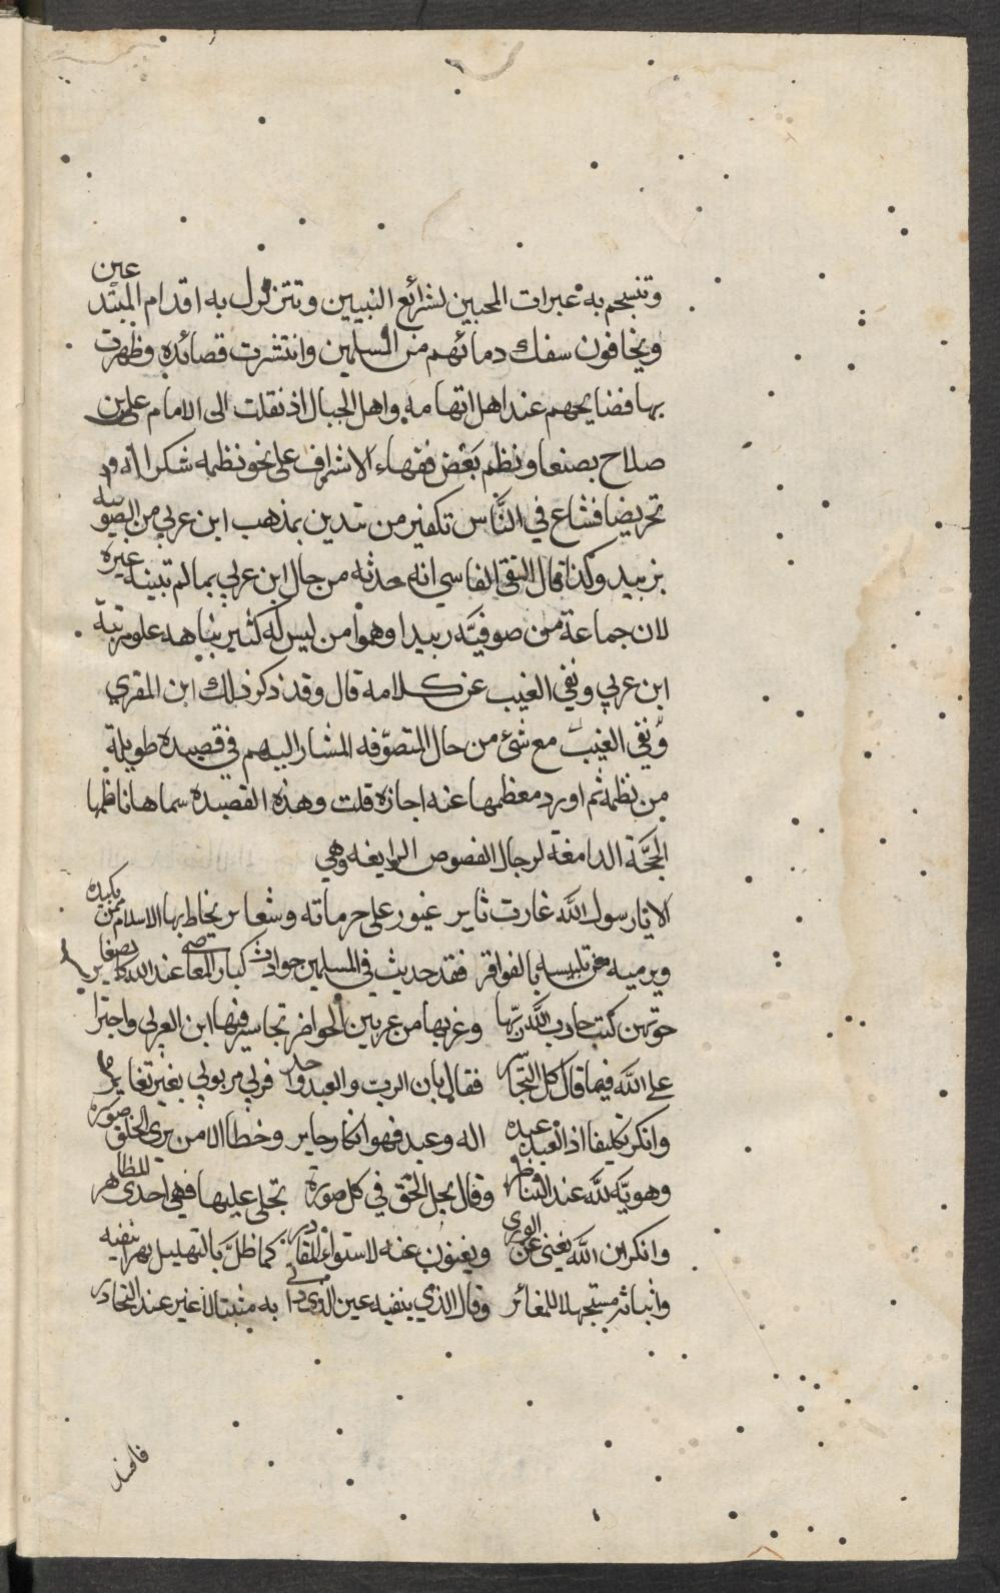 وتنسجم به عبرات المحبين لشرائع النبيين وتتزلزل به اقدام المبتدعين
ويخافون سفك دمائهم من المسلمين وانتشرت قصائده وظهرت
بها فضايحهم عند اهل اتهامه واهل الجبال اذ نقلت الى الامام على بن
صلاح بصنعا ونظم بعض فقهاء الاشراف على نحو نظمه شكرا له و
تحريضا فشاع في الناس تكفير من تدين بمذهب ابن عربي من الصوفيه
بزبيد وكذا قال التقى الفاسي انه حدثه من حال ابن عربي بما لم تبينه غيره
لان جماعة من صوفيه زبيد اوهموا من ليس له كثير نباهه علو مرتبة
ابن عربي ونفي العيب عن كلامه قال وقد ذكر ذلك ابن المقري
ونفي العيب مع شئ من حال المتصوفه المشار اليهم في قصيدة طويلة
من نظمه ثم اورد معظمها عنه اجازة قلت وهذه القصيده سماها ناظمها
الحجة الدامغة لرجال الفصوص الزايغه وهي
الا يا رسول الله غارت ثاير غيور على حرماته وشعاير يحاط بها الاسلام ممن يكيده
ويرميه من تلبيسه بالفواقر فقد حديث في المسلمين حوادث كبار المعاصي عند الله كصغاير
حوتهن كتب حارب الله ربها وغر بها من غر بين الحواضر تجاسر فيها ابن العربي واجترا
على الله فيما قال كل التجاسر فقال بان الرب والعبد واحد فربي مربوبي بغير تغاير
وانكر تكليفا اذ العبد عنده اله وعبد فهو انكار حاير وخطا الا من يرى الخلق صورة
وهويه لله عند التناظر وقال يحل الحق في كل صورة تجلى عليها فهي احدى المظاهر
وانكر ان الله يغنى عن الورى ويغنون عنه لاستواء المقادر كما ظل بالتهليل يهزا بنفيه
واثباته مستجهلا للمغائر وقال الذي ينفيه عين الذي اتى به مثبتا لا غير عند التحادر
فافسد